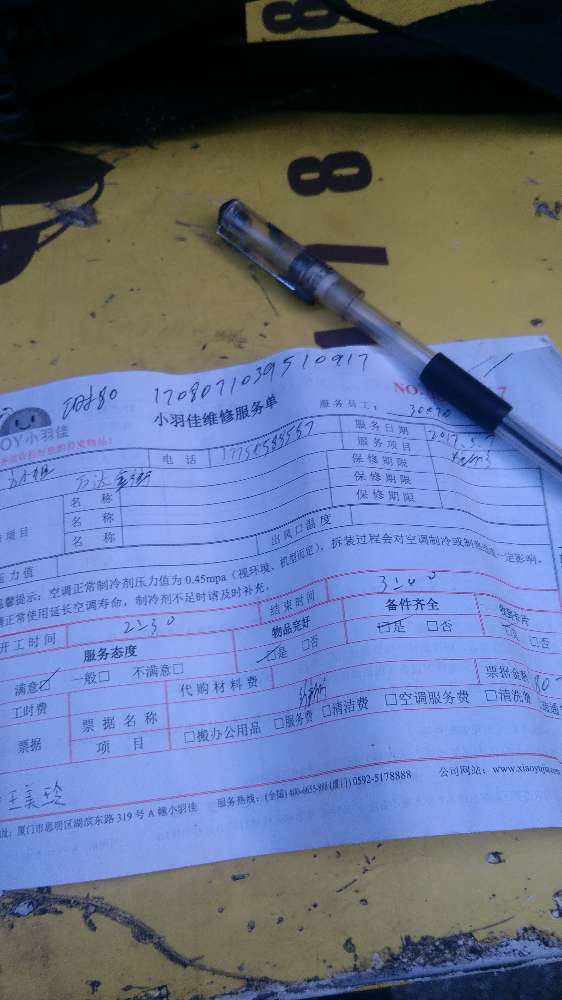 8
8
17080710395 10917
NO.
OY小羽佳
小羽佳维修服务单
服务员工:
电 话
服务日期
服务项目
名 称
保修期限
名 称
保修期限
项目
名 称
保修期限
压力值
出风口温度
馨提示:空调正常制冷剂压力值为 0.45mpa(视环境、机型而定),拆装过程会对空调制冷或制热造成一定影响。
正常使用延长空调寿命,制冷剂不足时请及时补充。
开工时间 2:30 结束时间 3:00
服务态度 物品完好 备件齐全
满意☑ 一般□ 不满意□ ☑是 □否 ☑是 □否 □否
工时费 代购材料费
票据 票据名称 票据金额 80
项 目 □搬办公用品 □服务费 □清洁费 □空调服务费 □清洗费
址:厦门市思明区湖滨东路 319 号 A 幢小羽佳 服务热线:(全国) 400-6655-888 (厦门) 0592-5178888 公司网站:www.xiaoyujia